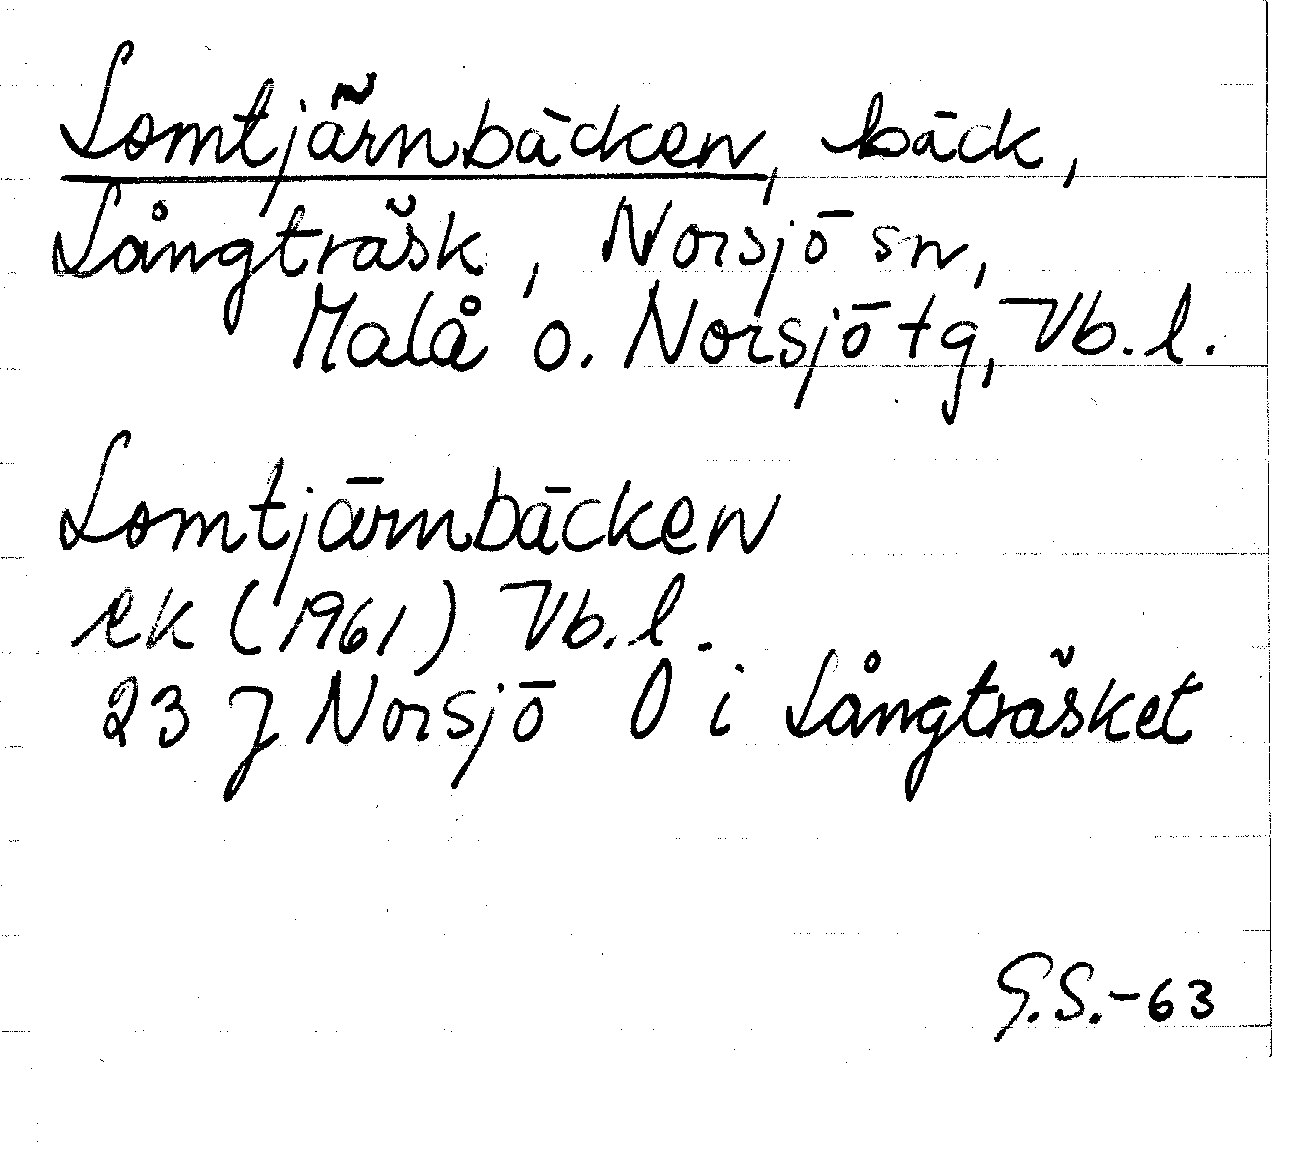 Lomtjärnbäcken, bäck,
Långträsk, Norsjö sn,
Malå o. Norsjö tg, Vb. l.
Lomtjärnbäcken
ek (1961) Vb. l.
23 J Norsjö O i Långträsket
G.S.-63